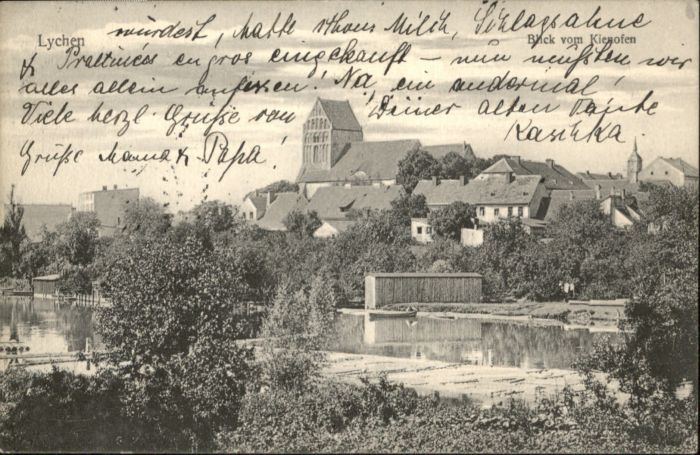 Lychen
Blick vom Kienofen
würdest, hatte schon Milch, Schlagsahne
& Pralinées en gros eingekauft – nun mußten wir
alles allein aufessen! Na, ein andermal!
Viele herzl. Grüße von Deiner alten Tante
Kaschka
Grüße Mama & Papa!